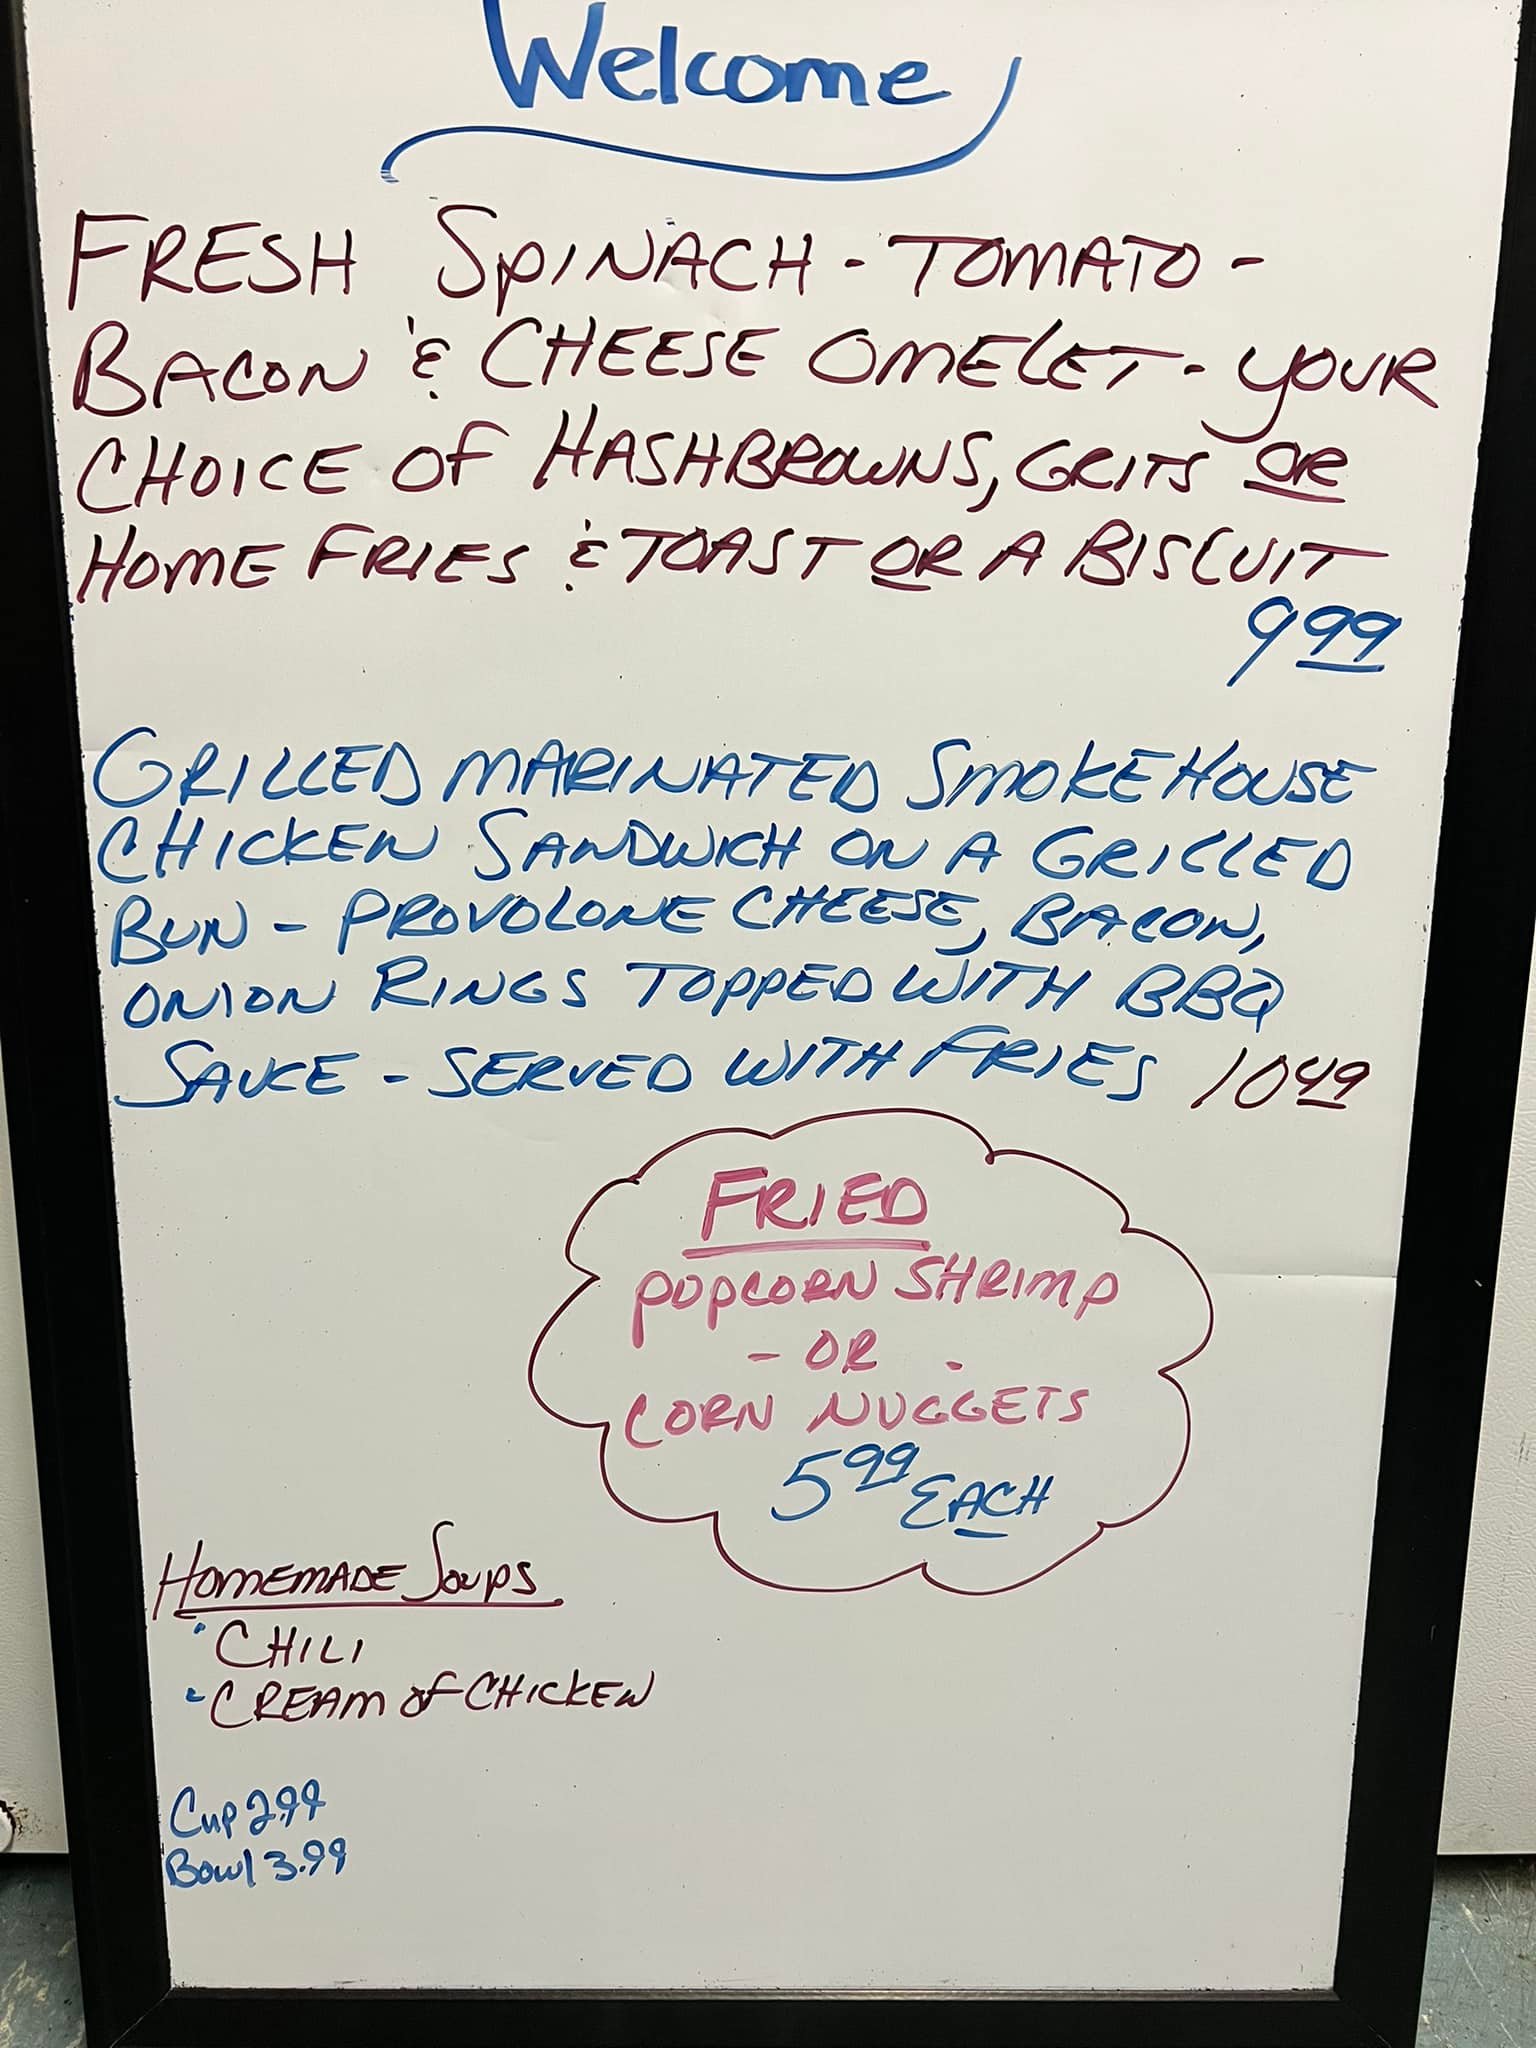 Welcome
FRESH SPINACH - TOMATO -
BACON & CHEESE OMELET - YOUR
CHOICE OF HASHBROWNS, GRITS OR
HOME FRIES & TOAST OR A BISCUIT
9.99
GRILLED MARINATED SMOKEHOUSE
CHICKEN SANDWICH ON A GRILLED
BUN - PROVOLONE CHEESE, BACON,
ONION RINGS TOPPED WITH BBQ
SAUCE - SERVED WITH FRIES 10.49
FRIED
POPCORN SHRIMP
- OR -
CORN NUGGETS
5.99 EACH
HOMEMADE SOUPS
• CHILI
• CREAM OF CHICKEN
Cup 2.99
Bowl 3.99